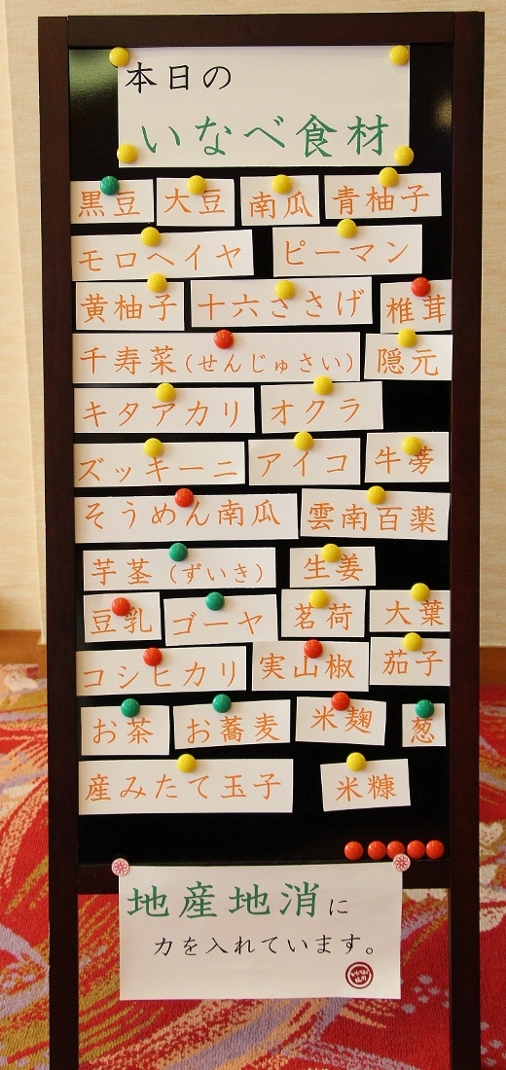 本日の
いなべ食材
黒豆 大豆 南瓜 青柚子
モロヘイヤ ピーマン
黄柚子 十六ささげ 椎茸
千寿菜(せんじゅさい) 隠元
キタアカリ オクラ
ズッキーニ アイコ 牛蒡
そうめん南瓜 雲南百薬
芋茎(ずいき) 生姜
豆乳 ゴーヤ 茗荷 大葉
コシヒカリ 実山椒 茄子
お茶 お蕎麦 米麹 葱
産みたて玉子 米糠
地産地消に
力を入れています。